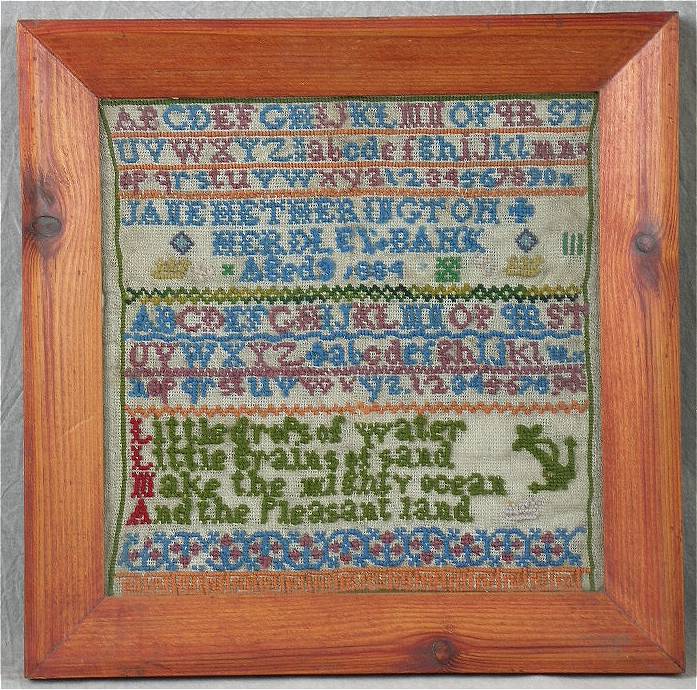 ABCDEFGHIJKLMNOPQRST
UVWXYZ abcdefghijklmn
opqrstuvwxyz1234567890
JANE HETHERINGTON
HERDLEY BANK
Aged 9 1884
ABCDEFGHIJKLMNOPQRST
UVWXYZ abcdefghijklm
nopqrstuvwxyz1234567890
Little drops of water
Little Grains of sand
Make the mighty ocean
And the Pleasant land